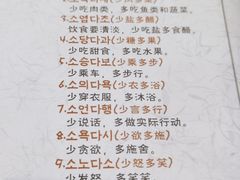 少吃肉类，多吃鱼类和蔬菜。
3.소염다초(少盐多醋)
饮食要清淡，少吃盐多食醋
4.소당다과(少糖多果)
少吃甜食，多吃水果。
5.소승다보(少乘多步)
少乘车，多步行。
6.소의다욕(少衣多浴)
少穿衣服，多沐浴。
7.소언다행(少言多行)
少说话，多做实际行动。
8.소욕다시(少欲多施)
少贪欲，多施舍。
9.소노다소(少怒多笑)
少发怒，多笑笑